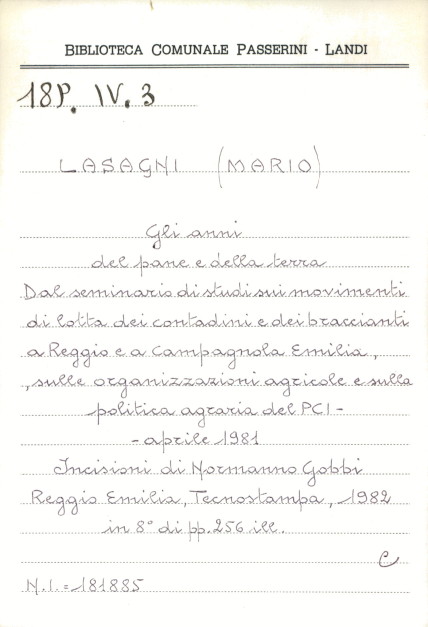 BIBLIOTECA COMUNALE PASSERINI - LANDI
18P. IV. 3
LASAGNI (MARIO)
Gli anni
del pane e della terra
Dal seminario di studi sui movimenti
di lotta dei contadini e dei braccianti
a Reggio e a Campagnola Emilia,
, sulle organizzazioni agricole e sulla
politica agraria del PCI -
- aprile 1981
Incisioni di Normanno Gobbi
Reggio Emilia, Tecnostampa, 1982
in 8° di pp. 256 ill.
C
N.I. = 181885